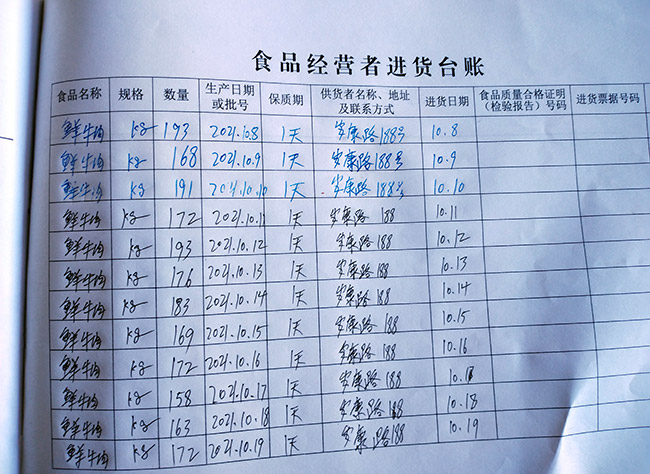 食品经营者进货台账
食品名称 规格 数量 生产日期或批号 保质期 供货者名称、地址及联系方式 进货日期 食品质量合格证明(检验报告)号码 进货票据号码
鲜牛肉 kg 193 2021.10.8 1天 安康路188号 10.8
鲜牛肉 kg 168 2021.10.9 1天 安康路188号 10.9
鲜牛肉 kg 191 2021.10.10 1天 安康路188号 10.10
鲜牛肉 kg 172 2021.10.11 1天 安康路188 10.11
鲜牛肉 kg 193 2021.10.12 1天 安康路188 10.12
鲜牛肉 kg 176 2021.10.13 1天 安康路188 10.13
鲜牛肉 kg 183 2021.10.14 1天 安康路188 10.14
鲜牛肉 kg 169 2021.10.15 1天 安康路188 10.15
鲜牛肉 kg 172 2021.10.16 1天 安康路188 10.16
鲜牛肉 kg 158 2021.10.17 1天 安康路188
鲜牛肉 kg 163 2021.10.18 1天 安康路188 10.18
鲜牛肉 kg 172 2021.10.19 1天 安康路188 10.19